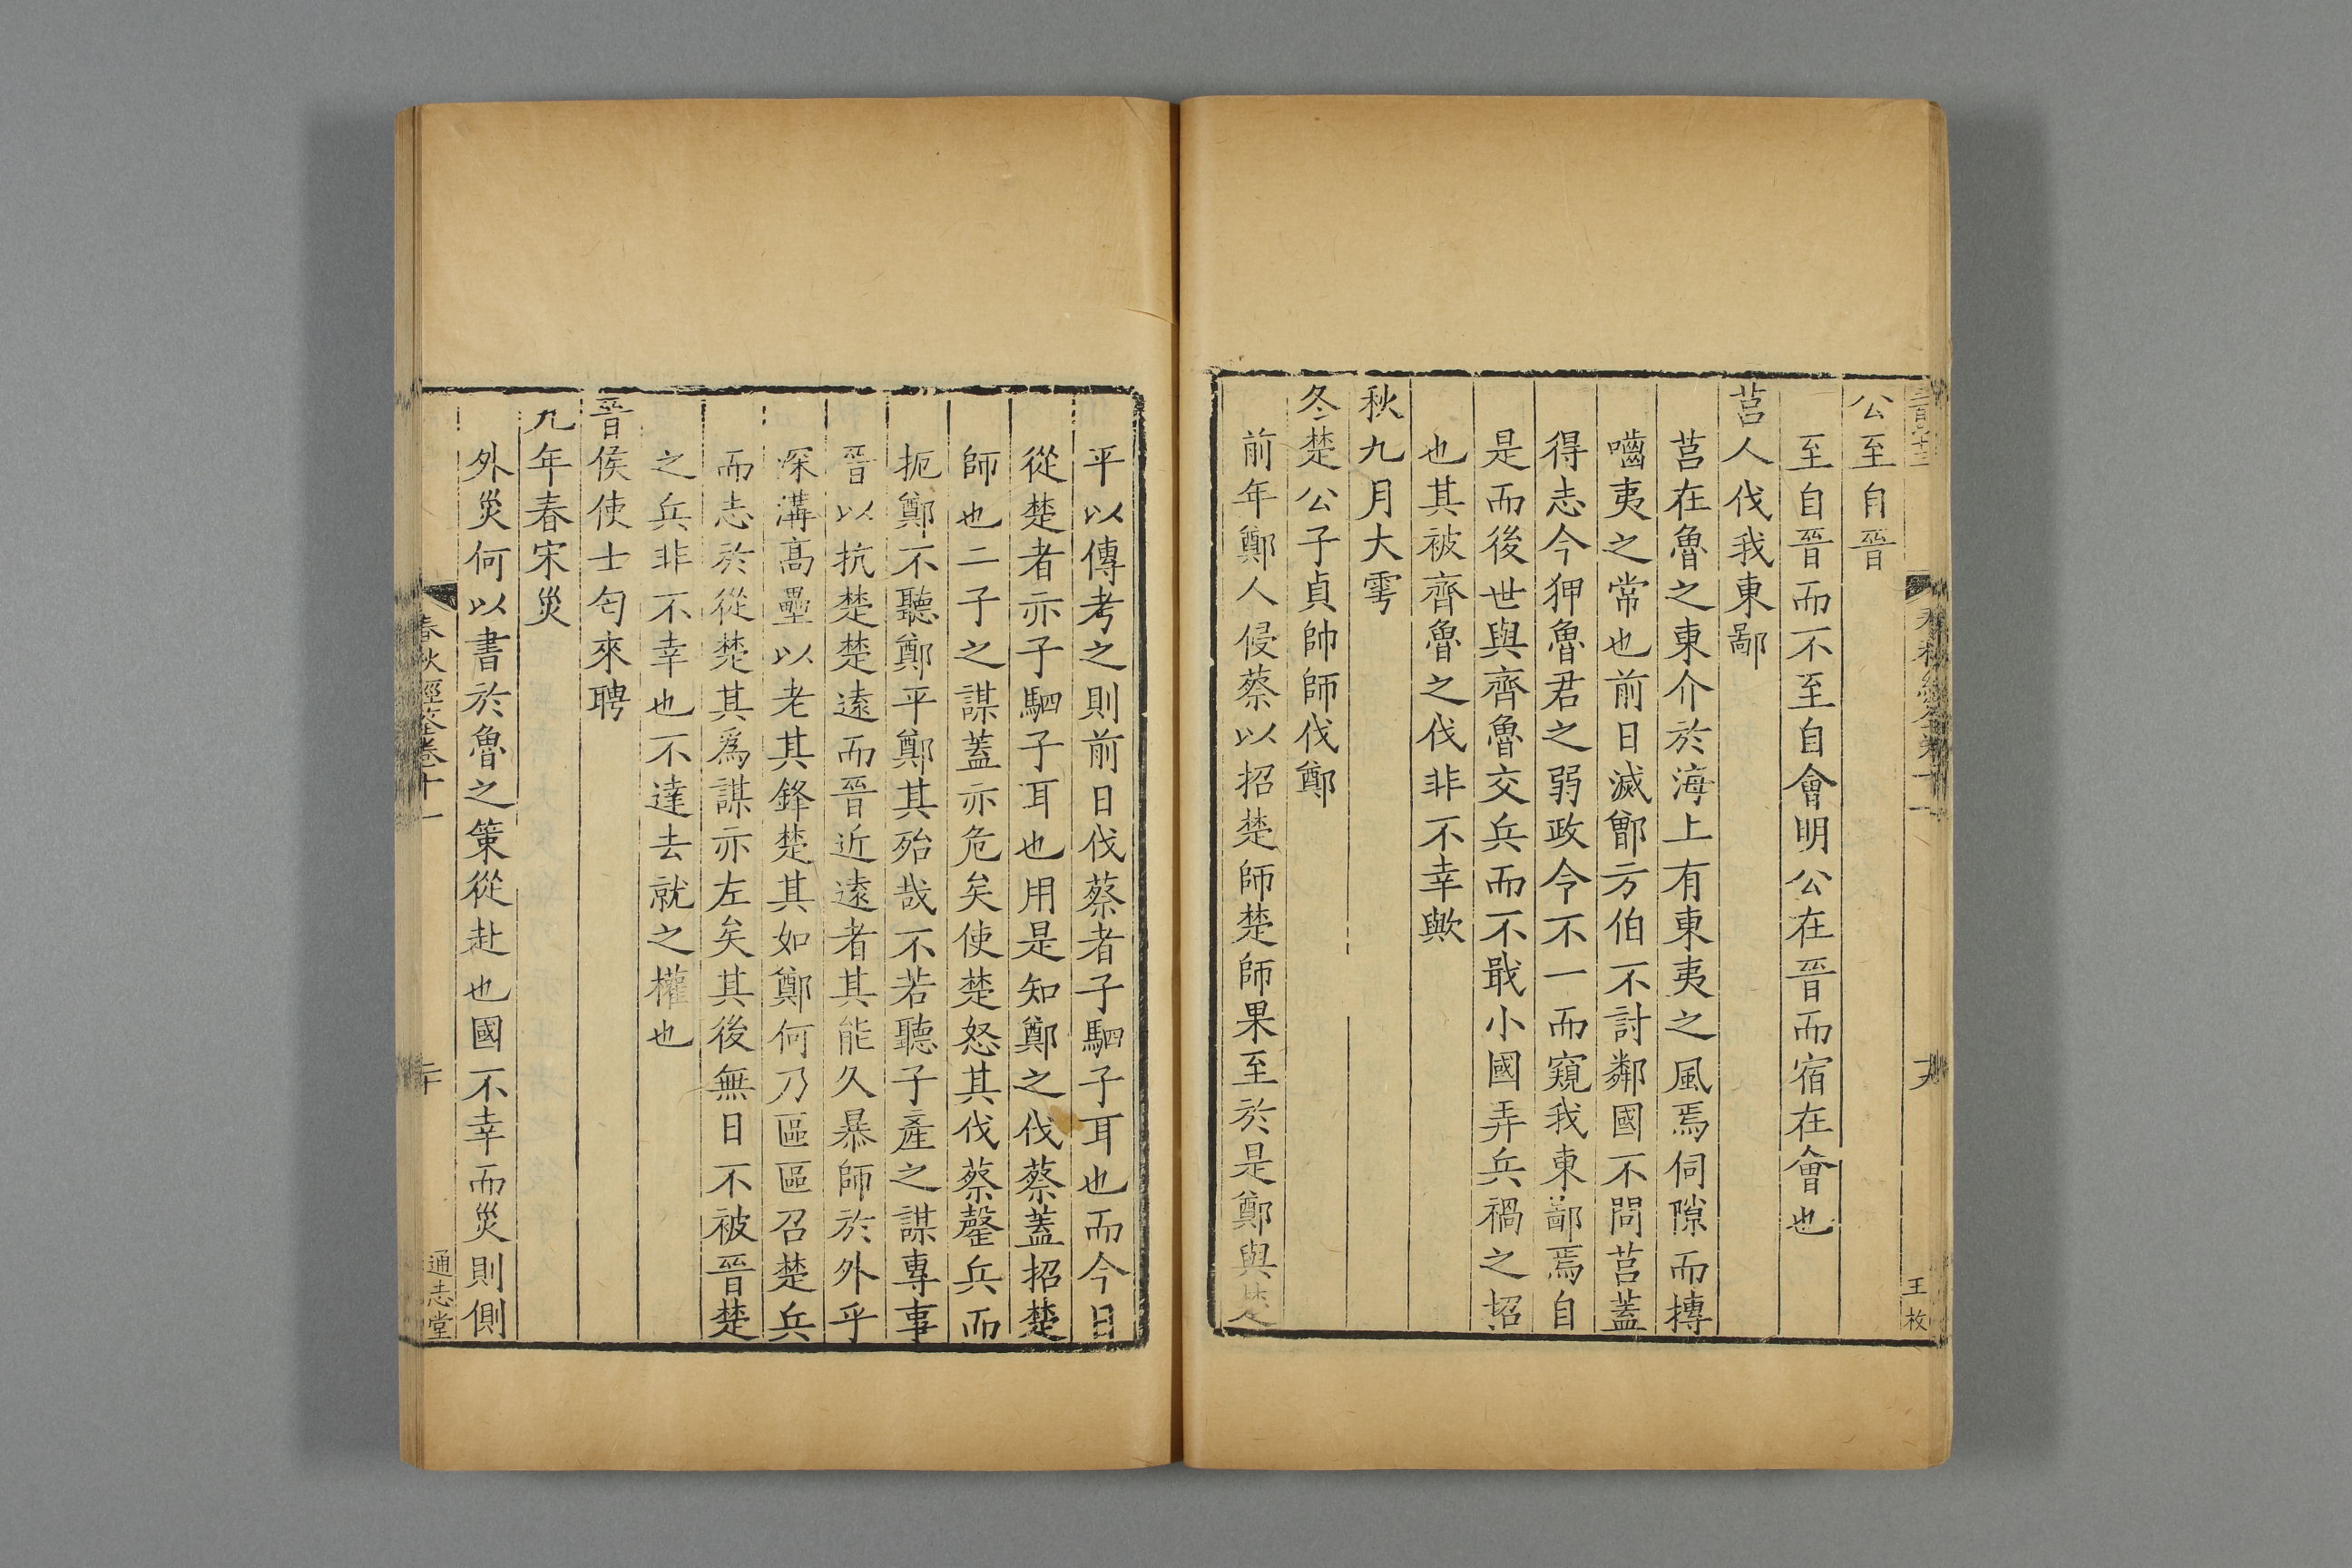 公至自晉
至自晉而不至自會明公在晉而宿在會也
莒人伐我東鄙
莒在魯之東介於海上有東夷之風焉伺隙而摶
嚙夷之常也前日滅鄫方伯不討鄰國不問莒蓋
得志今狎魯君之弱政令不一而窺我東鄙焉自
是而後世與齊魯交兵而不戢小國弄兵禍之招
也其被齊魯之伐非不幸歟
秋九月大雩
冬楚公子貞帥師伐鄭
前年鄭人侵蔡以招楚師楚師果至於是鄭與楚
王枚
平以傳考之則前日伐蔡者子駟子耳也而今日
從楚者亦子駟子耳也用是知鄭之伐蔡蓋招楚
師也二子之謀蓋亦危矣使楚怒其伐蔡罄兵而
扼鄭不聽鄭平鄭其殆哉不若聽子產之謀專事
晉以抗楚楚遠而晉近遠者其能久暴師於外乎
深溝高壘以老其鋒楚其如鄭何乃區區召楚兵
而志於從楚其爲謀亦左矣其後無日不被晉楚
之兵非不幸也不達去就之權也
晉侯使士匄來聘
九年春宋災
外災何以書於魯之策從赴也國不幸而災則側
春秋經筌卷十一
二十
通志堂